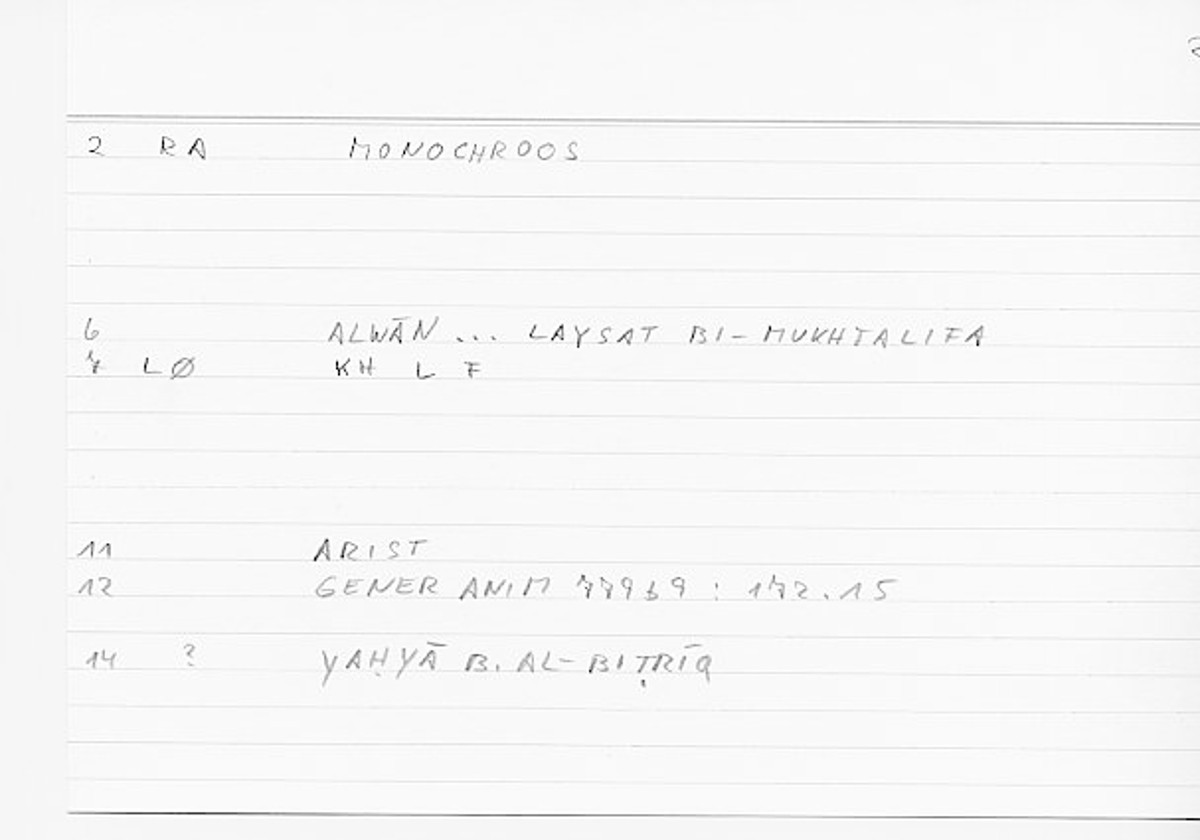 2 RA MONOCHROOS
6 ALWĀN ... LAYSAT BI-MUKHTALIFA
7 LØ KH L F
11 ARIST
12 GENER ANIM 779b9 : 172.15
14 ? YAḤYĀ B. AL-BIṬRĪQ